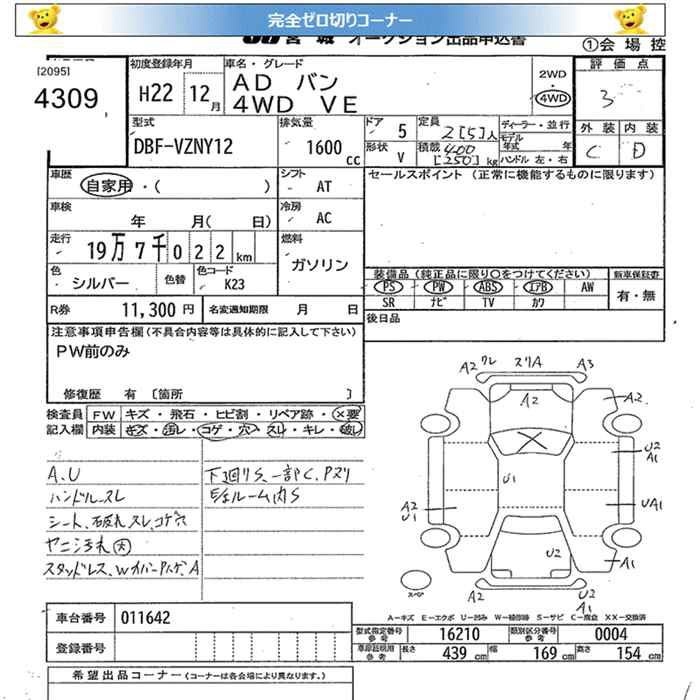 完全ゼロ切りコーナー
JU 宮城 オークション出品申込書
①会場控
[2095]
4309
初度登録年月
H22 12月
車名・グレード
AD バン
4WD VE
2WD
・
4WD
評価点
3
外装 内装
C D
型式
DBF-VZNY12
排気量
1600 cc
ドア 5
形状 V
定員 2[5]人
積載 400[250]kg
ディーラー・並行
モデル年式 年
ハンドル 左・右
車歴
自家用・( )
シフト
AT
セールスポイント (正常に機能するものに限ります)
車検
年 月( 日)
冷房
AC
走行
19万7千022km
燃料
ガソリン
色
シルバー
色替
色コード
K23
装備品(純正品に限り○をつけてください)
PS PW ABS エアB AW
SR ナビ TV カワ
新車保証書
有・無
R券 11,300円
名変通知期限 月 日
後日品
注意事項申告欄(不具合内容等は具体的に記入して下さい)
PW前のみ
修復歴 有 〔箇所 〕
検査員記入欄
FW キズ・飛石・ヒビ割・リペア跡・×要
内装 キズ・汚レ・コゲ・穴・スレ・キレ・破レ
A、U
ハンドルスレ
シート、
スレ、コゲ穴
ヤニ汚れ 因
スタッドレス、
下廻りS、一部C、Pヌリ
ルーム内S
A2 ワレ スリA A3
A2
A2
U2
A1
U1
A2
U1
UA1
U2
A1
A2
U2
A1
スペア
A-キズ E-エクボ U-凹み W-補修跡 S-サビ C-腐食 XX-交換済
車台番号 011642
登録番号
型式指定番号参考 16210
類別区分番号参考 0004
車原証明用参考 長さ 439cm 幅 169cm 高さ 154cm
希望出品コーナー(コーナーは各会場により異なります。)